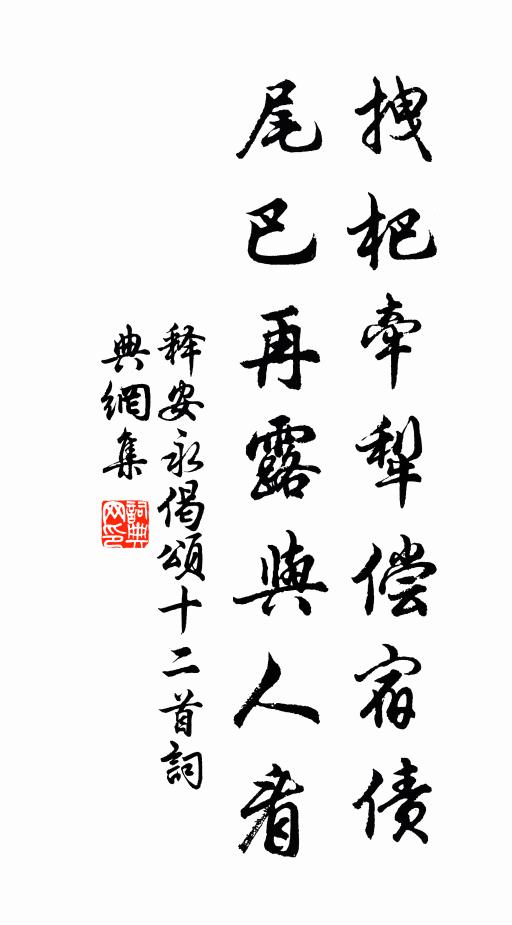 拽杷牵犁偿宿债
尾巴再露與人看
释安永偈頌十二首詞
典網集
詞典网印